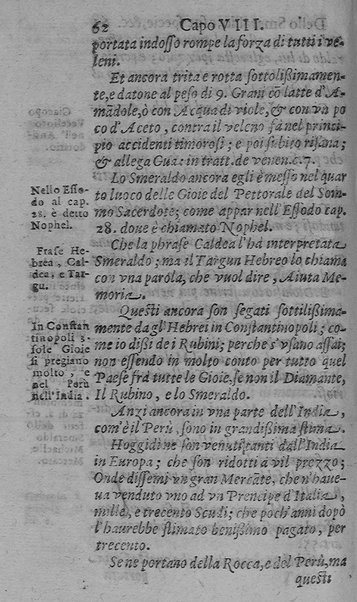 62 Capo VIII.
portata indosso rompe la forza di tutti i ve-
leni.
Et ancora trita e rotta sottolissimamen-
te, e datone al peso di 9. Grani cõ latte d'A-
mãdole, ò con Acqua di viole, & con vn po
co d'Aceto, contra il veleno fà nel princi-
pio accidenti timorosi; e poi subito risana;
& allega Gua: in tratt. de venen. c. 7.
Lo Smeraldo ancora egli è messo nel quar
to luoco delle Gioie del Pettorale del Som-
mo Sacerdote; come appar nell'Essodo cap.
28. doue è chiamato Nophel.
Che la phrase Caldea l'hà interpretata
Smeraldo; ma il Targun Hebreo lo chiama
con vna parola, che vuol dire, Aiuta Me-
moria.
Questi ancora son segati sottilissima-
mente dagl'Hebrei in Constantinopoli; co-
me io dissi de i Rubini; perche s'vsano assai;
non essendo in molto conto per tutto quel
Paese frà tutte le Gioie, se non il Diamante,
Il Rubino, e lo Smeraldo.
Anzi ancora in vna parte dell'India,
com'è il Perù, sono in grandissima stima.
Hoggidì ne son venuti tanti dall'India
in Europa; che son ridotti a vil prezzo;
Onde dissemi vn gran Mercãte, che n'haue-
ua venduto vno ad vn Prencipe d'Italia,
mille, e trecento Scudi; che poch'anni dopò
l'haurebbe stimato benissimo pagato, per
trecento.
Se ne portano della Rocca, e del Perù, ma
questi
Nello Esso-
do al cap.
28. è detto
Nophel.
Frase He-
brea, Cal-
dea, e Tar-
gu.
In Constan
tinopoli 3.
sole Gioie
si pregiano
molto, e
nel Perù
nell'India.